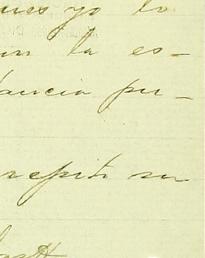 ues yo lo
un la es-
tancia pu-
repiti su